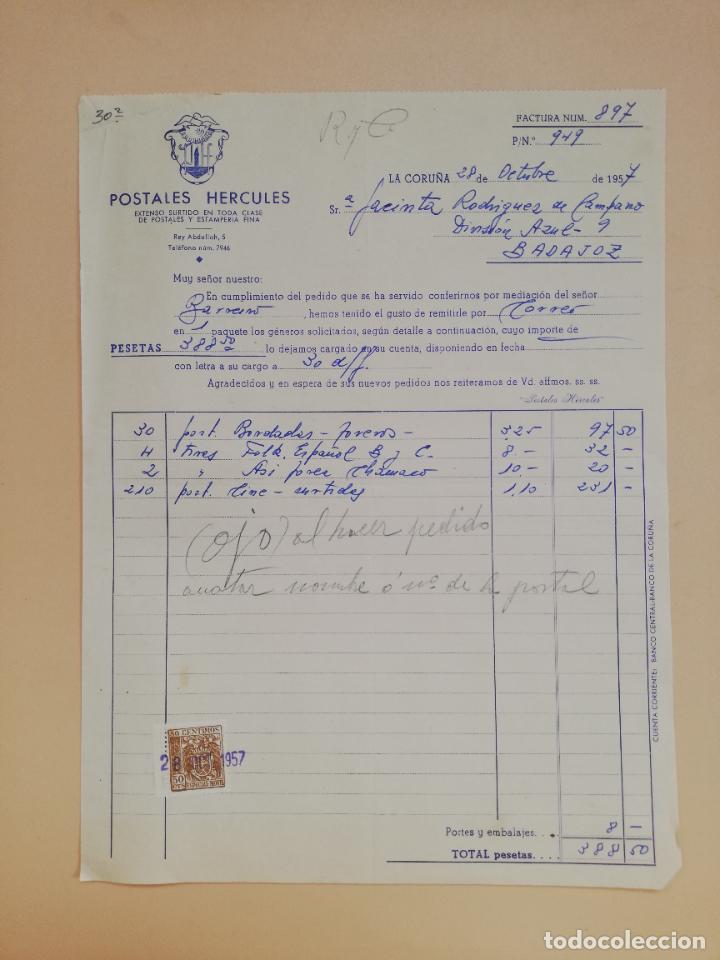 30²
R y C.
FACTURA NUM. 897
P/N.º 949
POSTALES HERCULES
EXTENSO SURTIDO EN TODA CLASE
DE POSTALES Y ESTAMPERIA FINA
Rey Abdullah, 5
Teléfono núm. 7946
LA CORUÑA 28 de Octubre de 1957
Sr.ª Jacinta Rodriguez de Campano
División Azul - 9
BADAJOZ
Muy señor nuestro:
En cumplimiento del pedido que se ha servido conferirnos por mediación del señor
Barreiro, hemos tenido el gusto de remitirle por Correo
en 1 paquete los géneros solicitados, según detalle a continuación, cuyo importe de
PESETAS 388,50 lo dejamos cargado en su cuenta, disponiendo en fecha
con letra a su cargo a 30 d/f.
Agradecidos y en espera de sus nuevos pedidos nos reiteramos de Vd. affmos. ss. ss.
"Postales Hércules"
30 post. Bordadas - toreros - 3,25 97 50
4 tires Folk. Español B y C. 8 - 32 -
2 " Asi torea Chamaco 10 - 20 -
210 post. Cine - surtidas 1,10 231 -
(ojo) al hacer pedido
anotar nombre ó nº de la postal
50 CENTIMOS
28 OCT. 1957
50 CTS ESPECIAL MOVIL
CUENTA CORRIENTE: BANCO CENTRAL-BANCO DE LA CORUÑA
Portes y embalajes. . . 8 -
TOTAL pesetas. . . . 388 50
todocoleccion.net